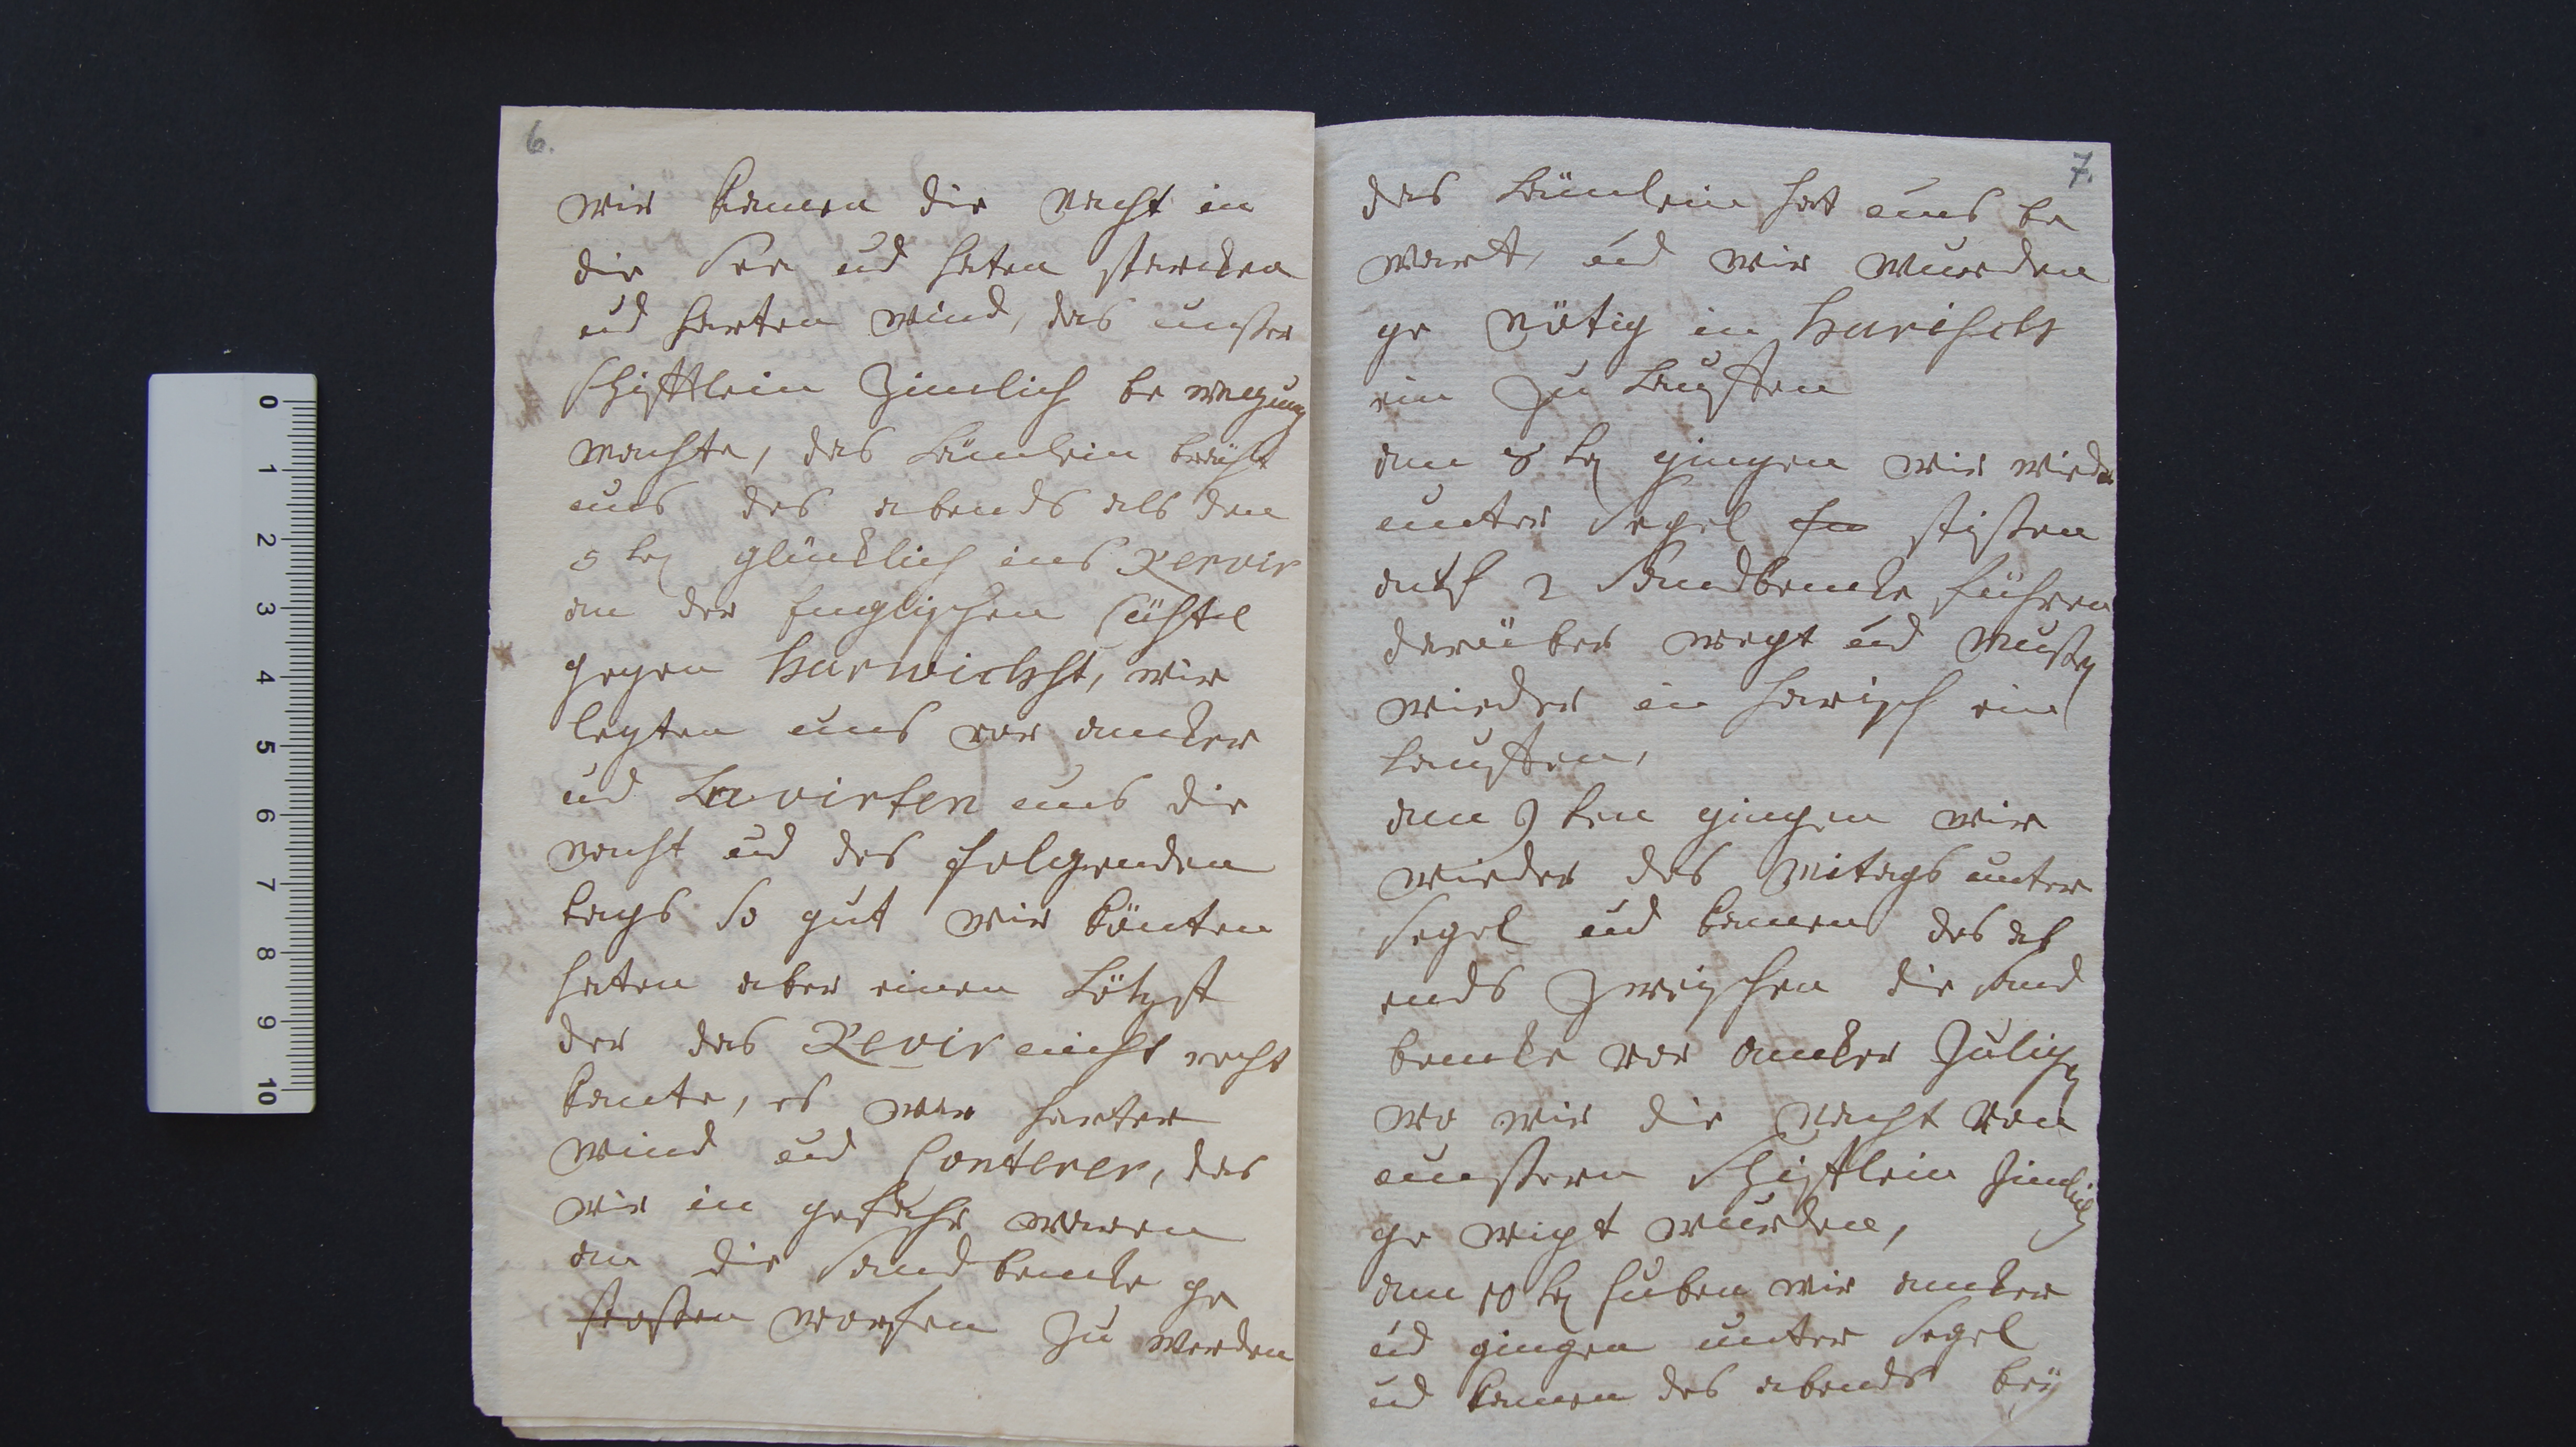 6.
wir kamen die nacht in
die See ud haten starcken
ud harten wind, das unsser
schifflein Zimlich be wegung
machte, das Lämlein bracht
uns des abends als den
5 ten glücklich ins Rervir
an der Englischen Cüste
gegen Harwichht, wir
legten uns vor ancker
ud Lavirten uns die
nacht ud des folgenden
tags so gut wir könten
haten aber einen Lötzst
der das Revir nicht recht
kante, es war harter
wind ud Conterer, das
wir in gefahr waren
an die Sandbencke ge
stossen worfen Zu werden
7.
das Lämlein hat uns be
wart, ud wir wurden
ge nötig in Harisch
ein Zu Lauffen
am 8 ten gingen wir wieder
unter Segel stissen
auf 2 Sandbencke führen
darüber wegt ud musten
wieder in Harisch ein
lauffen,
am 9 ten gingen wir
wieder des Mitags unter
Segel ud kamen des ab
ends Zwischen die Sand
bencke vor ancker Zuligen
wo wir die nacht von
unssern schifflein Zimlich
ge wigt wurden,
am 10 ten huben wir ancker
ud gingen unter Segel
ud kamen des abends bey
0 1 2 3 4 5 6 7 8 9 10